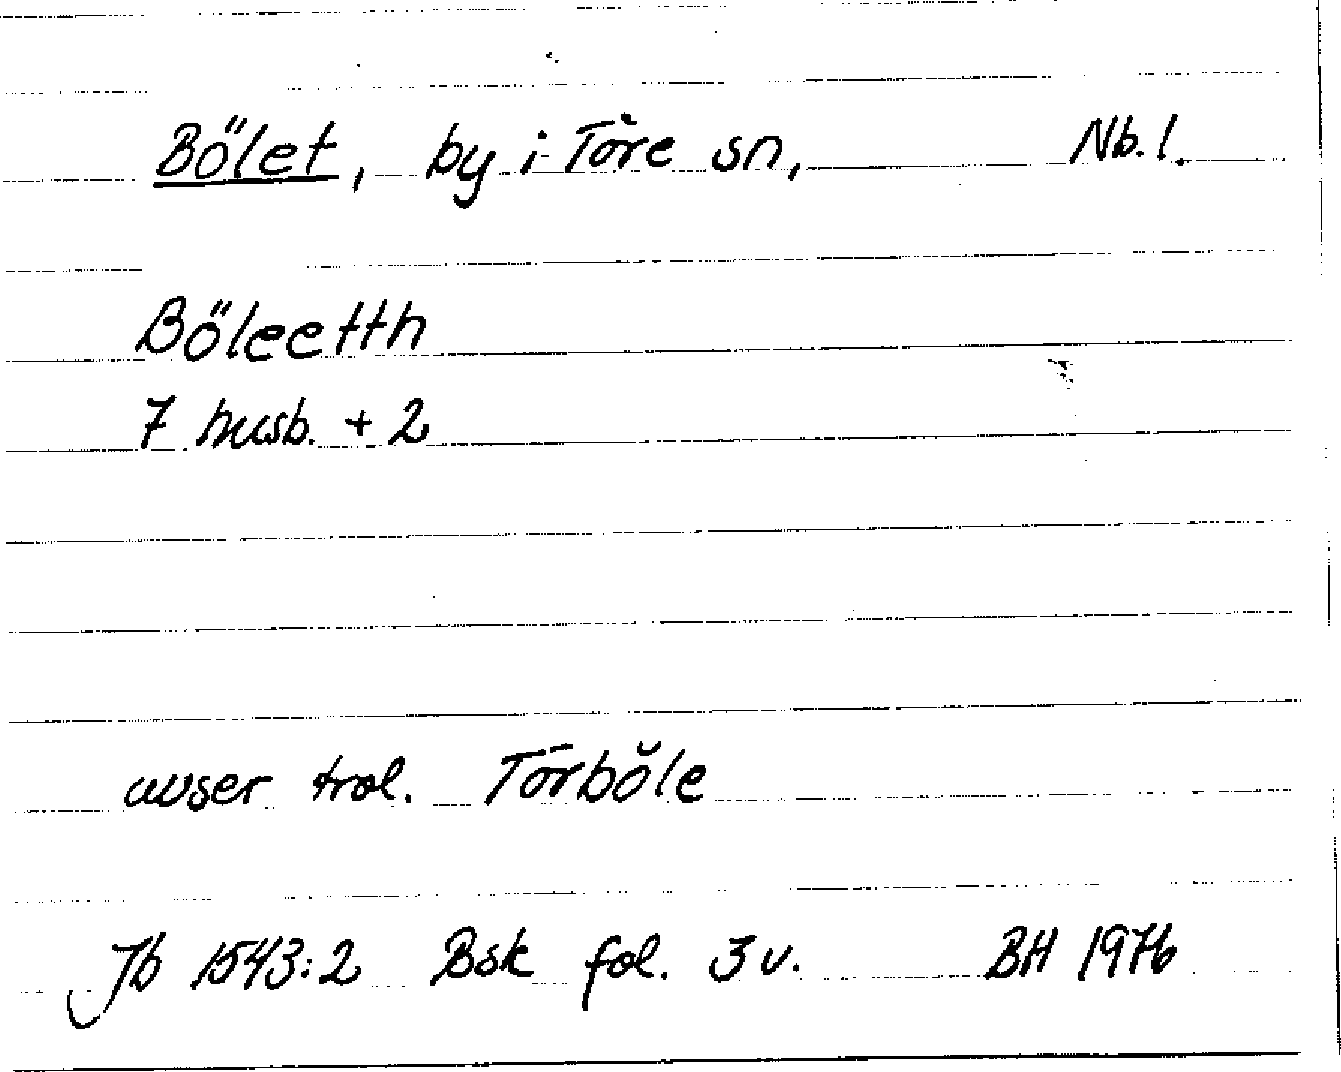 Bölet, by i Töre sn, Nb. l.
Böleetth
7 husb. + 2
avser trol. Törböle
Jb 1543:2 Bsk fol. 3 v. BH 1976